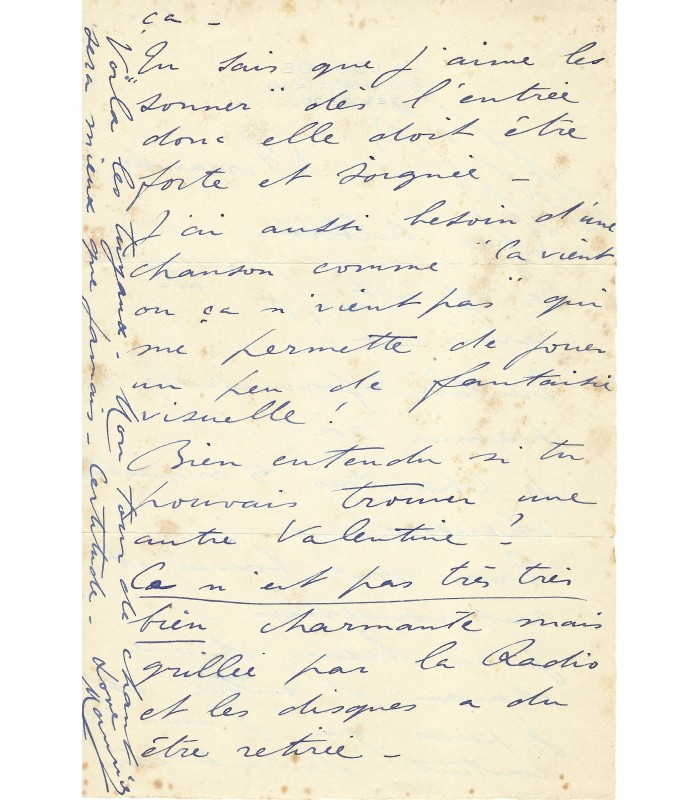 ça -
Tu sais que j'aime les
"sonner" dès l'entrée
donc elle doit être
forte et soignée -
J'ai aussi besoin d'une
chanson comme "Ca vient
ou ça n'vient pas" qui
me permette de jouer
un peu de fantaisie
visuelle !
Bien entendu si tu
pouvais trouver une
autre Valentine !
Ca n'est pas très très
bien charmante mais
grillée par la Radio
et les disques a du
être retirée -
Voilà les tuyaux - Mon tour de chant
sera mieux que jamais - Certitude - Love
Maurice